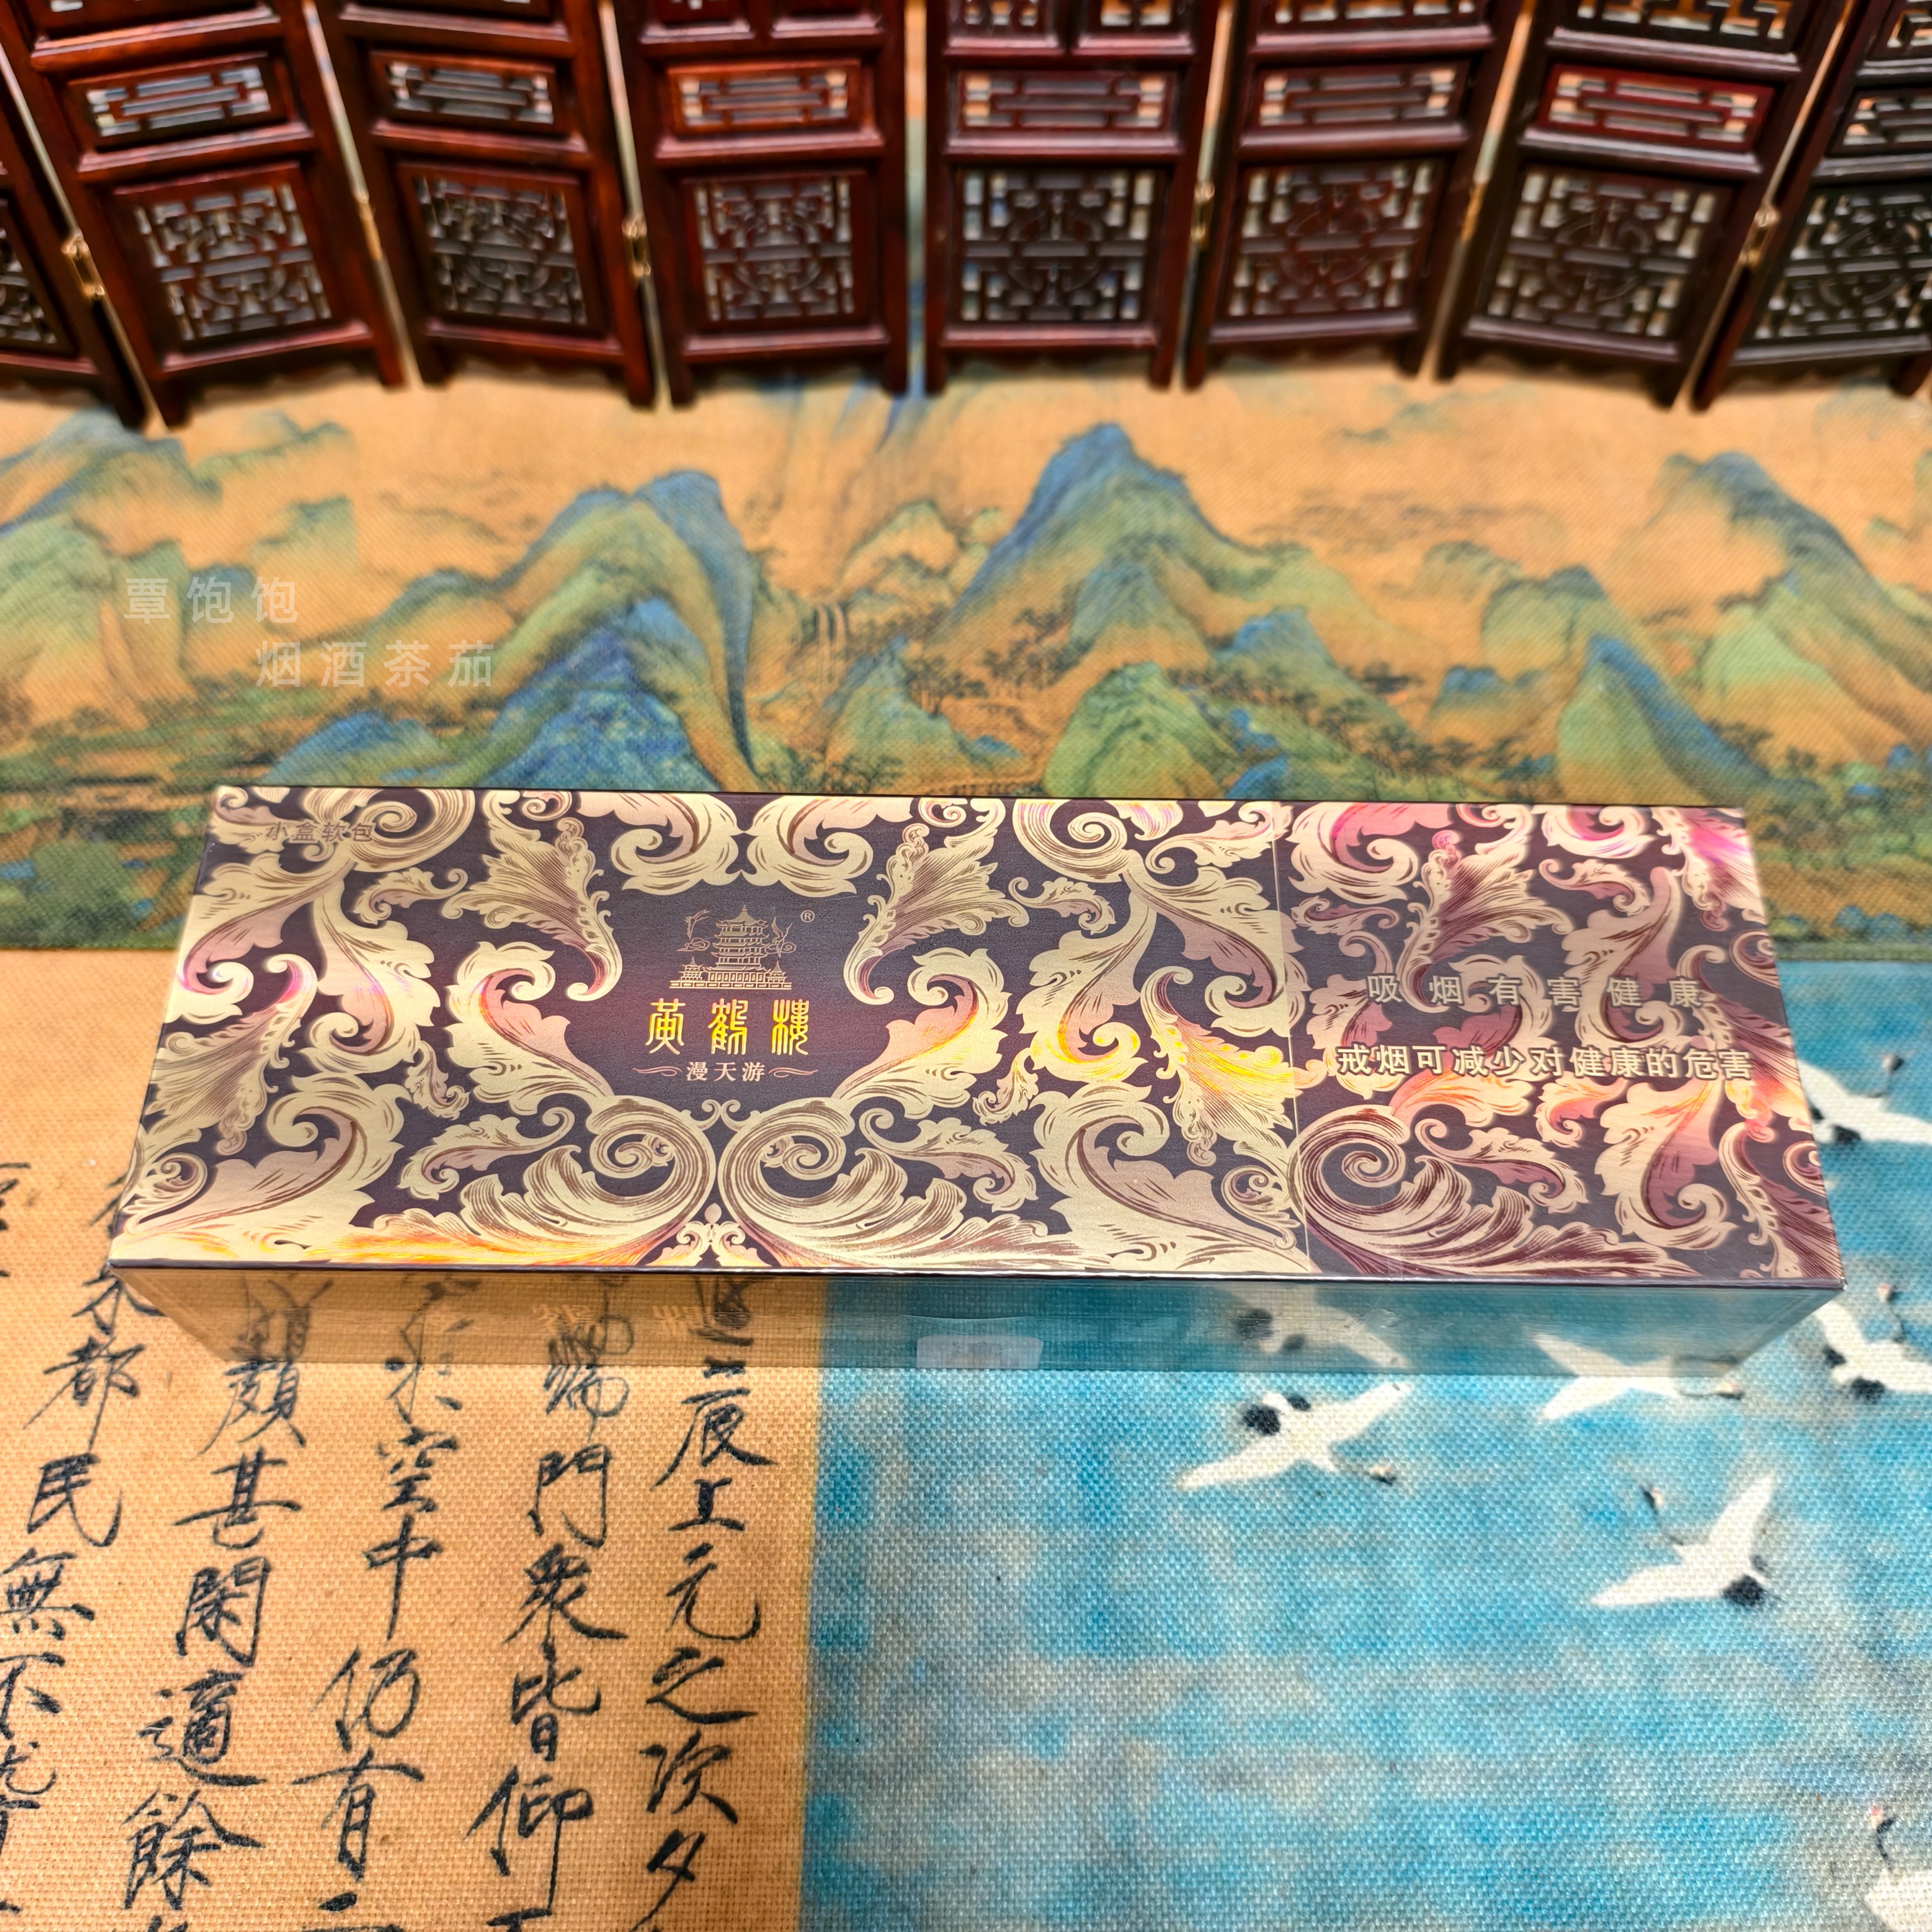 覃饱饱
烟酒茶茄
小盒软包
®
黄鹤楼
漫天游
吸烟有害健康
戒烟可减少对健康的危害
辰上元之次夕
端門眾皆仰
空中仍有
頗甚閑適餘
都民無不